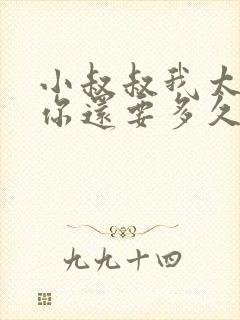 小叔叔我太
你還要多久
九九十四